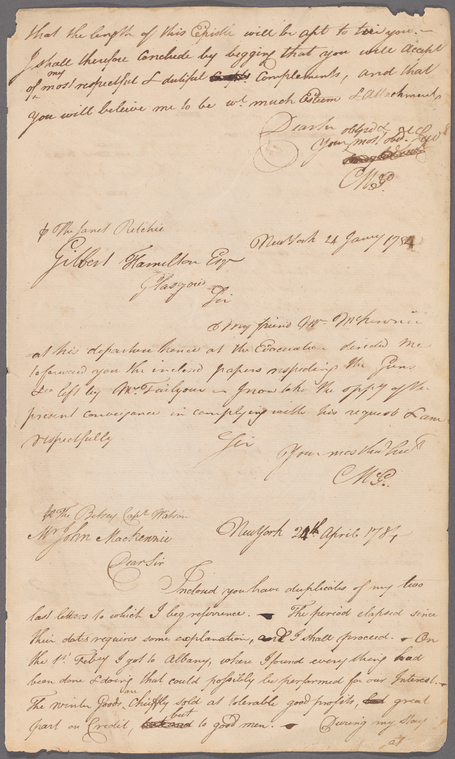 that the length of this Epistle will be apt to tire you.—
I shall therefore conclude by begging that you will accept
of my most respectful & dutiful Complements, and that
you will beleive me to be wt. much Esteem & Attachment
Dear Sir
Your most obedt.
CMcP
P The Janet Ritchie
NewYork 24 Jany 1784
Gilbert Hamilton Esqr
Glasgow
Sir
My friend Mr. McKennie
at his departure hence at the Evacuation desired me
to forward you the inclosed papers respecting the Guns
&ca left by Mr. Tailyour — I now take the oppy of the
present conveyance in complying with his request & am
respectfully
Sir
Your most hue. Servt
CMcP.
P The Betsey Capt. Watson
Mr John MacKennie
NewYork 24th April 1784
Dear Sir
Inclosed you have duplicates of my two
last letters to which I beg referrence. — The period elapsed since
their dates requires some explanation, and I shall proceed. — On
the 1st. Feby I got to Albany, where I found every thing had
been done & doing that could possibly be performed for our Interest. —
The Winter Goods, are chieffly sold at tolerable good profits, great
part on Credit, but to good men. — During my Stay
at